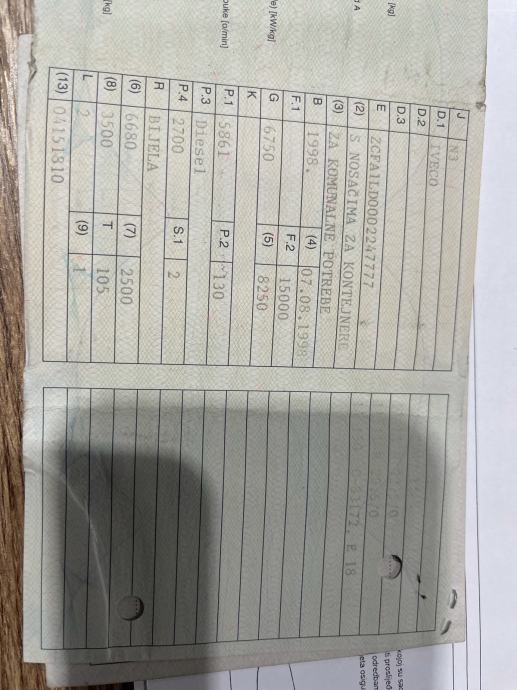 J N3
D.1 IVECO
D.2
D.3
E ZCFA1LD0002247777
(2) S NOSAČIMA ZA KONTEJNERE
(3) ZA KOMUNALNE POTREBE
B 1998. (4) 07.08.1998
F.1 F.2 15000
G 6750 (5) 8250
K
P.1 5861 P.2 130
P.3 Diesel
P.4 2700 S.1 2
R BIJELA
(6) 6680 (7) 2500
(8) 3500 T 105
L 2 (9) 1
(13) 04151810
[kg]
A
e) [kW/kg]
[o/min]
[kg]
koji su
odredbam